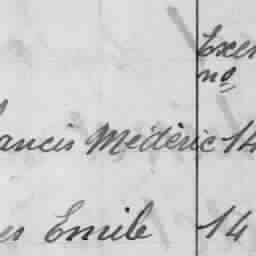 no
ancis Médéric 14
es Emile 14